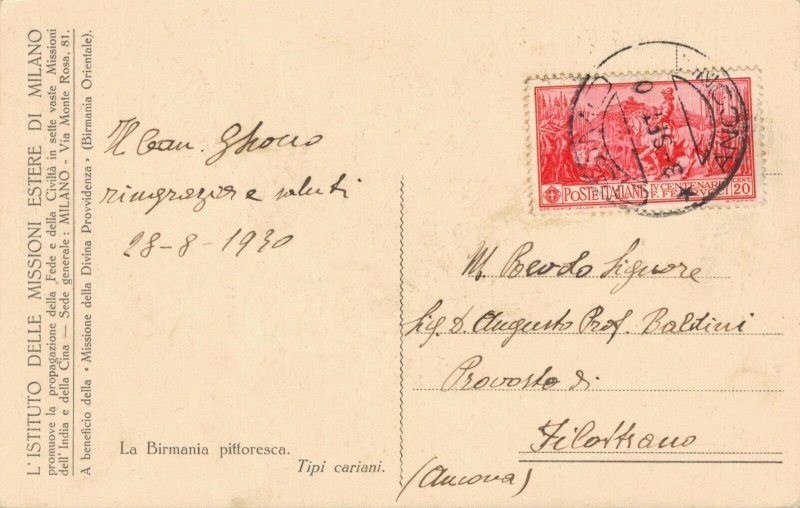 L'ISTITUTO DELLE MISSIONI ESTERE DI MILANO
promuove la propagazione della Fede e della Civiltà in sette vaste Missioni
dell'India e della Cina — Sede generale: MILANO - Via Monte Rosa, 81.
A beneficio della « Missione della Divina Provvidenza » (Birmania Orientale).
Il Can.
ringrazia e saluti
28-8-1930
La Birmania pittoresca.
Tipi cariani.
POSTE ITALIANE IV CENTENARIO
F. FERRUCCI
CENT.
20
M. Revdo Signore
Sig. D. Augusto Prof. Baldini
Provosto di
Filottrano
(Ancona)